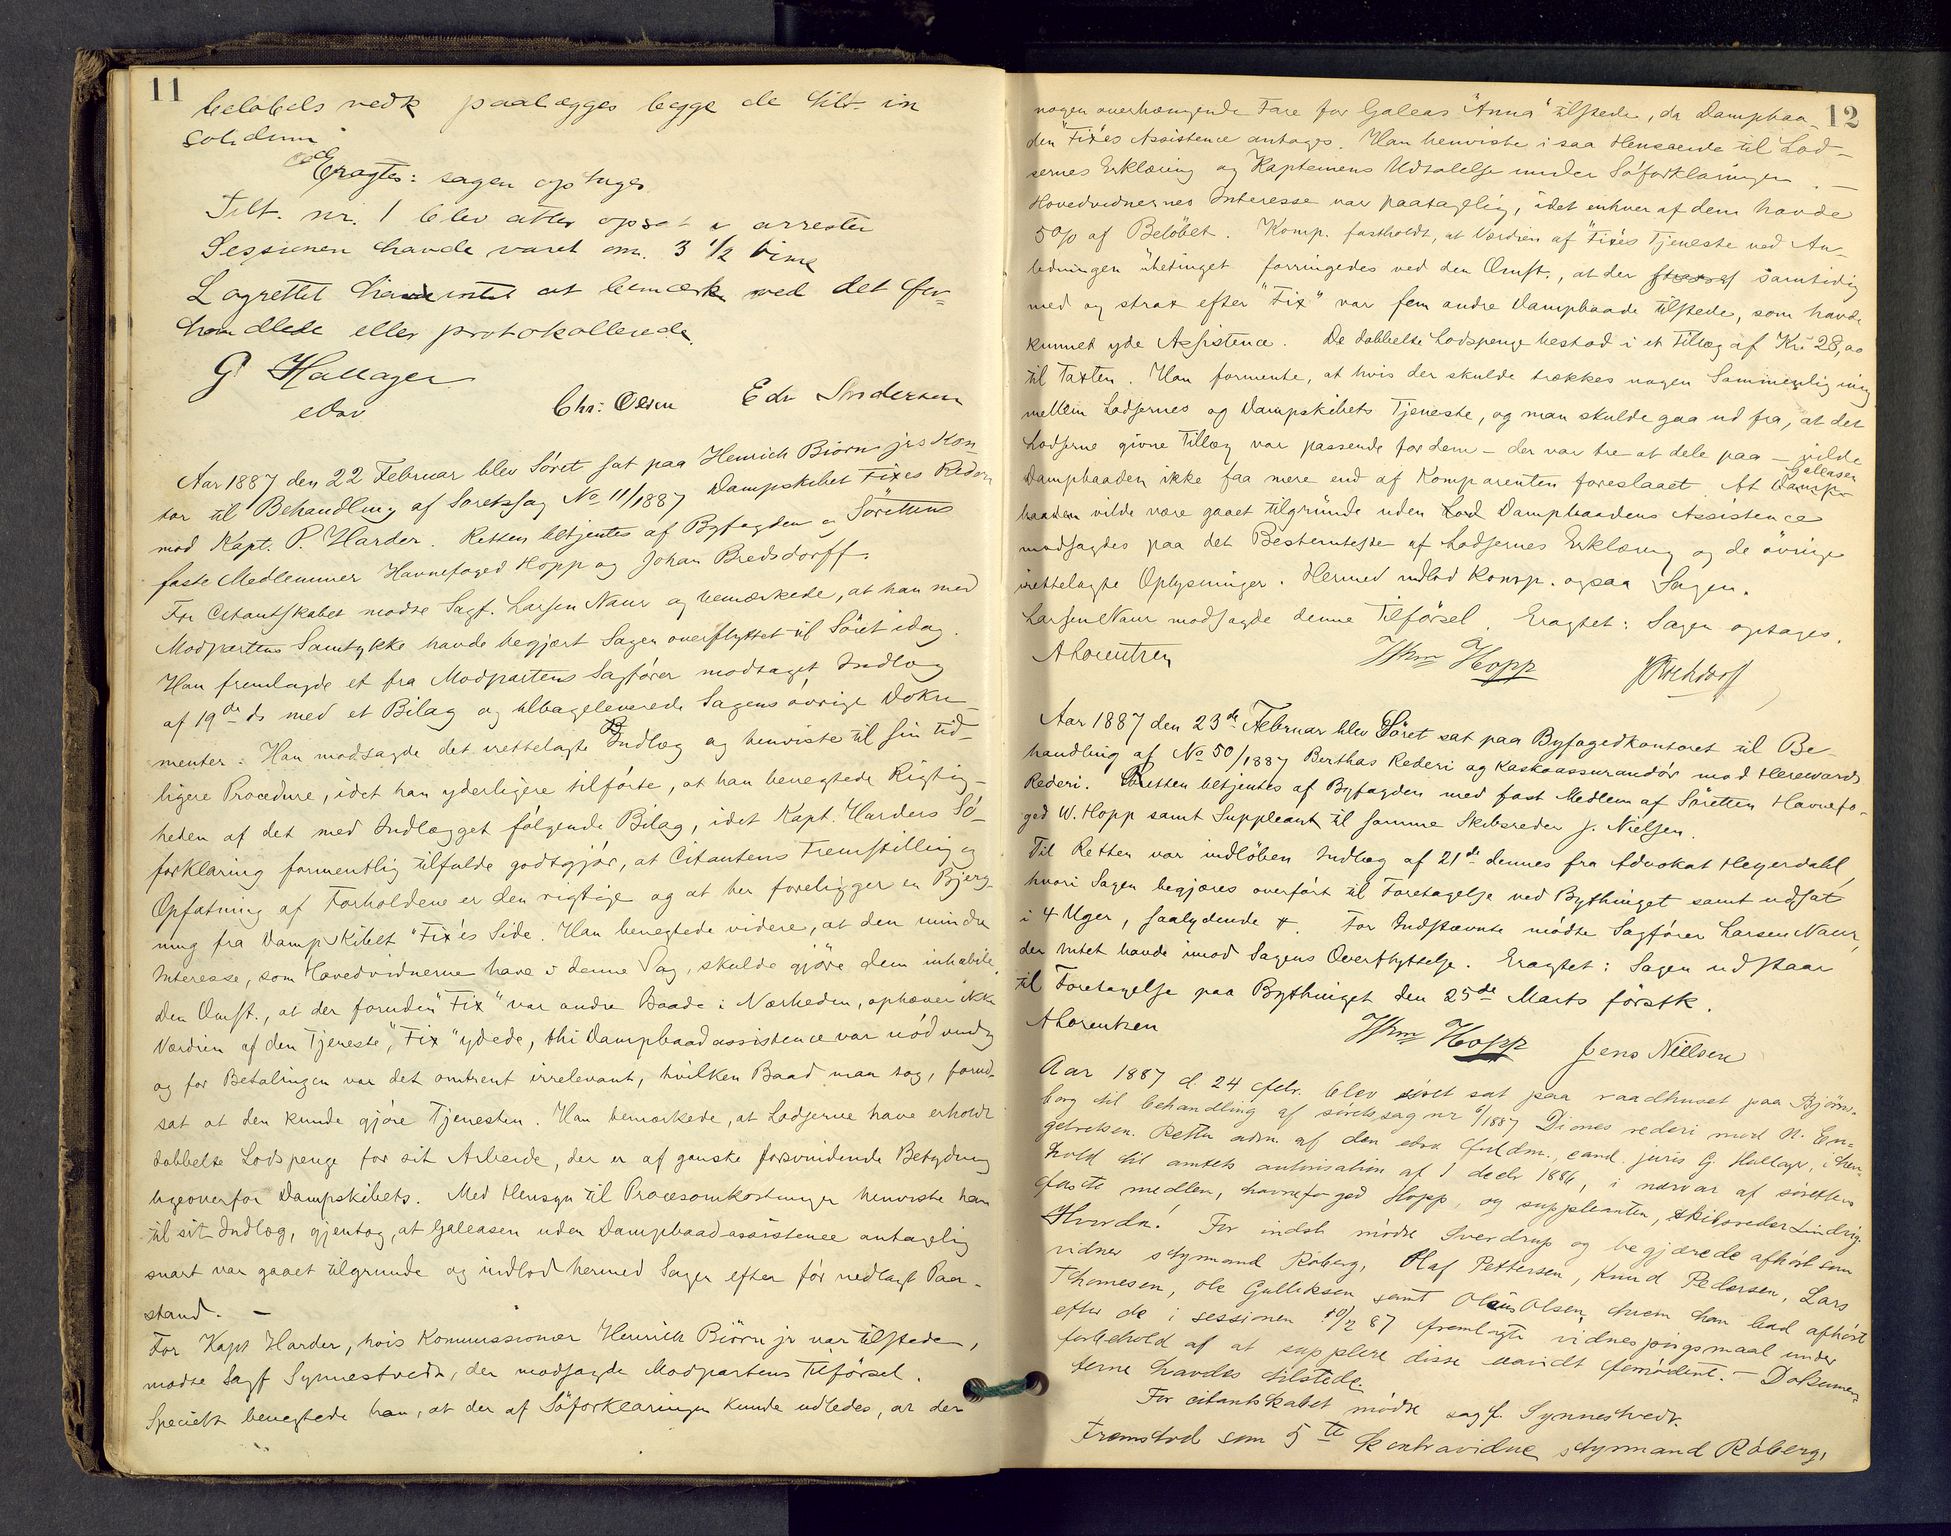 11
beløbels vedk paalægges begge de tilt. in
solidum
Eragtes: sagen optages.
Tilt. nr. 1 blev atter opsat i arresten
Sessionen havde varet om. 3 1/2 time
Lagrettet havde intet at bemærke ved det for-
handlede eller protokollerede.
G Hallager
edsv
Chr: Olsen Edv Andersen
Aar 1887 den 22 Februar blev Söret sat paa Henrich Biörn jrs Kon-
tor til Behandling af Søretssag No 11/1887 Dampskibet Fixes Rederi
mod Kapt. P. Harder. Retten betjentes af Byfogden og Sørettens
faste Medlemmer Havnefoged Hopp og Johan Bredsdorff.
For Citantskabet mødte Sagf. Larsen Naur og bemærkede, at han med
Modpartens Samtykke havde begjært Sagen overflyttet til Söret idag.
Han fremlagde et fra Modpartens Sagfører modtaget Indlæg
af 19de ds med et Bilag og tilbageleverede Sagens øvrige Doku-
menter. Han modsagde det rettelagte Indlæg og henviste til sin tid-
ligere Procedure, idet han yderligere tilførte, at han benegtede Rigtig-
heden af det med Indlægget følgende Bilag, idet Kapt. Harders Sö-
forklaring formentlig tilfulde godtgjör, at Citantens Fremstilling og
Opfatning af Forholdene er den rigtige og at her foreligger en Bjerg-
ning fra Dampskibet "Fix"es Side. Han benegtede videre, at den mindre
Interesse, som Hovedvidnerne have i denne Sag, skulde gjöre dem inhabile.
Den Omst., at der foruden "Fix" var andre Baade i Nærheden, ophæver ikke
Værdien af den Tjeneste, "Fix" ydede, thi Dampbaadassistence var nødvendig
og for Betalingen var det omtrent irrelevant, hvilken Baad man tog, forud-
sat at den kunde gjöre Tjenesten. Han bemærkede, at Lodserne have erholdt
dobbelte Lodspenge for sit Arbeide, der er af ganske forsvindende Betydning
ligeoverfor Dampskibets. Med Hensyn til Procesomkostninger henviste han
til sit Indlæg, gjentog, at Galeasen uden Dampbaadassistence antagelig
snart var gaaet tilgrunde og indlod hermed Sagen efter før nedlagt Paa-
stand. —
For Kapt Harder, hvis Kommissionær Henrich Biörn jr var tilstede,
mødte Sagf Synnestvedt, der modsagde Modpartens Tilförsel.
Specielt benegtede han, at der af Söforklaringen kunde udledes, at der
12
nogen overhængende Fare for Galeas "Anna" tilstede, da Dampbaa-
den "Fix"es Assistence antoges. Han henviste i saa Henseende til Lod-
sernes Erklæring og Kapteinens Udtalelse under Söforklaringen. —
Hovedvidnernes Interesse var paatagelig, idet enhver af dem havde
5% af Belöbet. Komp. fastholdt, at Værdien af "Fix"es Tjeneste ved An-
ledningen ubetinget forringedes ved den Omst., at der samtidig
med og strax efter "Fix" var fem andre Dampbaade tilstede, som havde
kunnet yde Assistence. De dobbelte Lodspenge bestod i et Tillæg af Kr 28,00
til Taxten. Han formente, at hvis der skulde trækkes nogen Sammenligning
mellem Lodsernes og Dampskibets Tjeneste, og man skulde gaa ud fra, at det
Lodserne givne Tillæg var passende for dem – der var tre at dele paa – vilde
Dampbaaden ikke faa mere end af Komparenten foreslaaet. At Galeasen
vilde være gaaet tilgrunde uden Dampbaadens Assistence
modsagdes paa det Bestemteste af Lodsernes Erklæring og de övrige
rettelagte Oplysninger. Hermed indlod Komp. ogsaa Sagen.
Larsen Naur modsagde denne Tilförsel. Eragtet: Sagen optages.
A Lorentzen Wm Hopp J Bredsdorff
Aar 1887 den 23de Februar blev Söret sat paa Byfogedkontoret til Be-
handling af No 50/1887 Berthas Rederi og Kaskoassurandör mod Herewards
Rederi. Retten betjentes af Byfogden med fast Medlem af Söretten Havnefo-
ged W. Hopp samt Suppleant til samme Skibsreder J. Nielsen.
Til Retten var indløben Indlæg af 21de dennes fra Advokat Heyerdahl,
hvori Sagen begjæres overført til Foretagelse ved Bythinget samt udsat
i 4 Uger, saalydende #. For Indstævnte mödte Sagförer Larsen Naur,
der Intet havde imod Sagens Overflyttelse. Eragtet: Sagen udstaar
til Foretagelse paa Bythinget den 25de Marts förstk.
A Lorentzen Wm Hopp Jens Nielsen
Aar 1887 d. 24 febr. blev söret sat paa raadhuset paa Bjørns-
borg til behandling af söretssag nr 6/1887 Diones rederi mod N. En-
gebretsen. Retten adm. af den edsv fuldm., cand. juris G. Hallager, i hen-
hold til amtets autorisation af 1 decbr 1886, i nærvær af sørettens
faste medlem, havnefoged Hopp, og suppleanten, skibsreder Lindvig.
Hvorda! For indst. mødte Sverdrup og begjærede afhørt som
vidner styrmand Råberg, Olaf Pettersen, Knud Pedersen, Lars
Thomesen, Ole Gulliksen samt Olaus Olsen, hvem han bad afhört
efter de i sessionen 10/2 87 fremlagte vidnespörgsmaal under
forbehold af at supplere disse verdict fornødent. – Dokumen-
terne havdes tilstede.
For citantskabet mødte sagf. Synnestvedt.
Fremstod som 5te kontravidne styrmand Råberg,